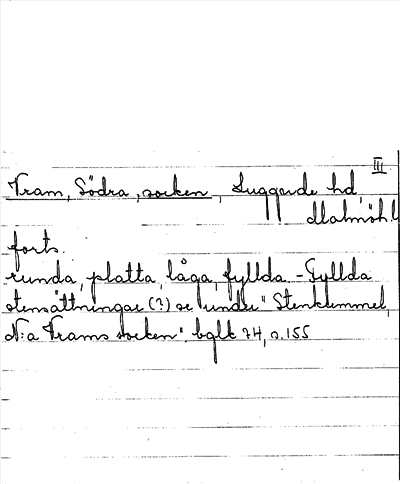 III
Vram, Södra, socken, Luggude hd,
Malmöh. l
forts.
runda, platta, låga, fyllda. - Fyllda
stensättningar (?) se under "Stenkummel,
N:a Vrams socken" bglt 74, s. 155